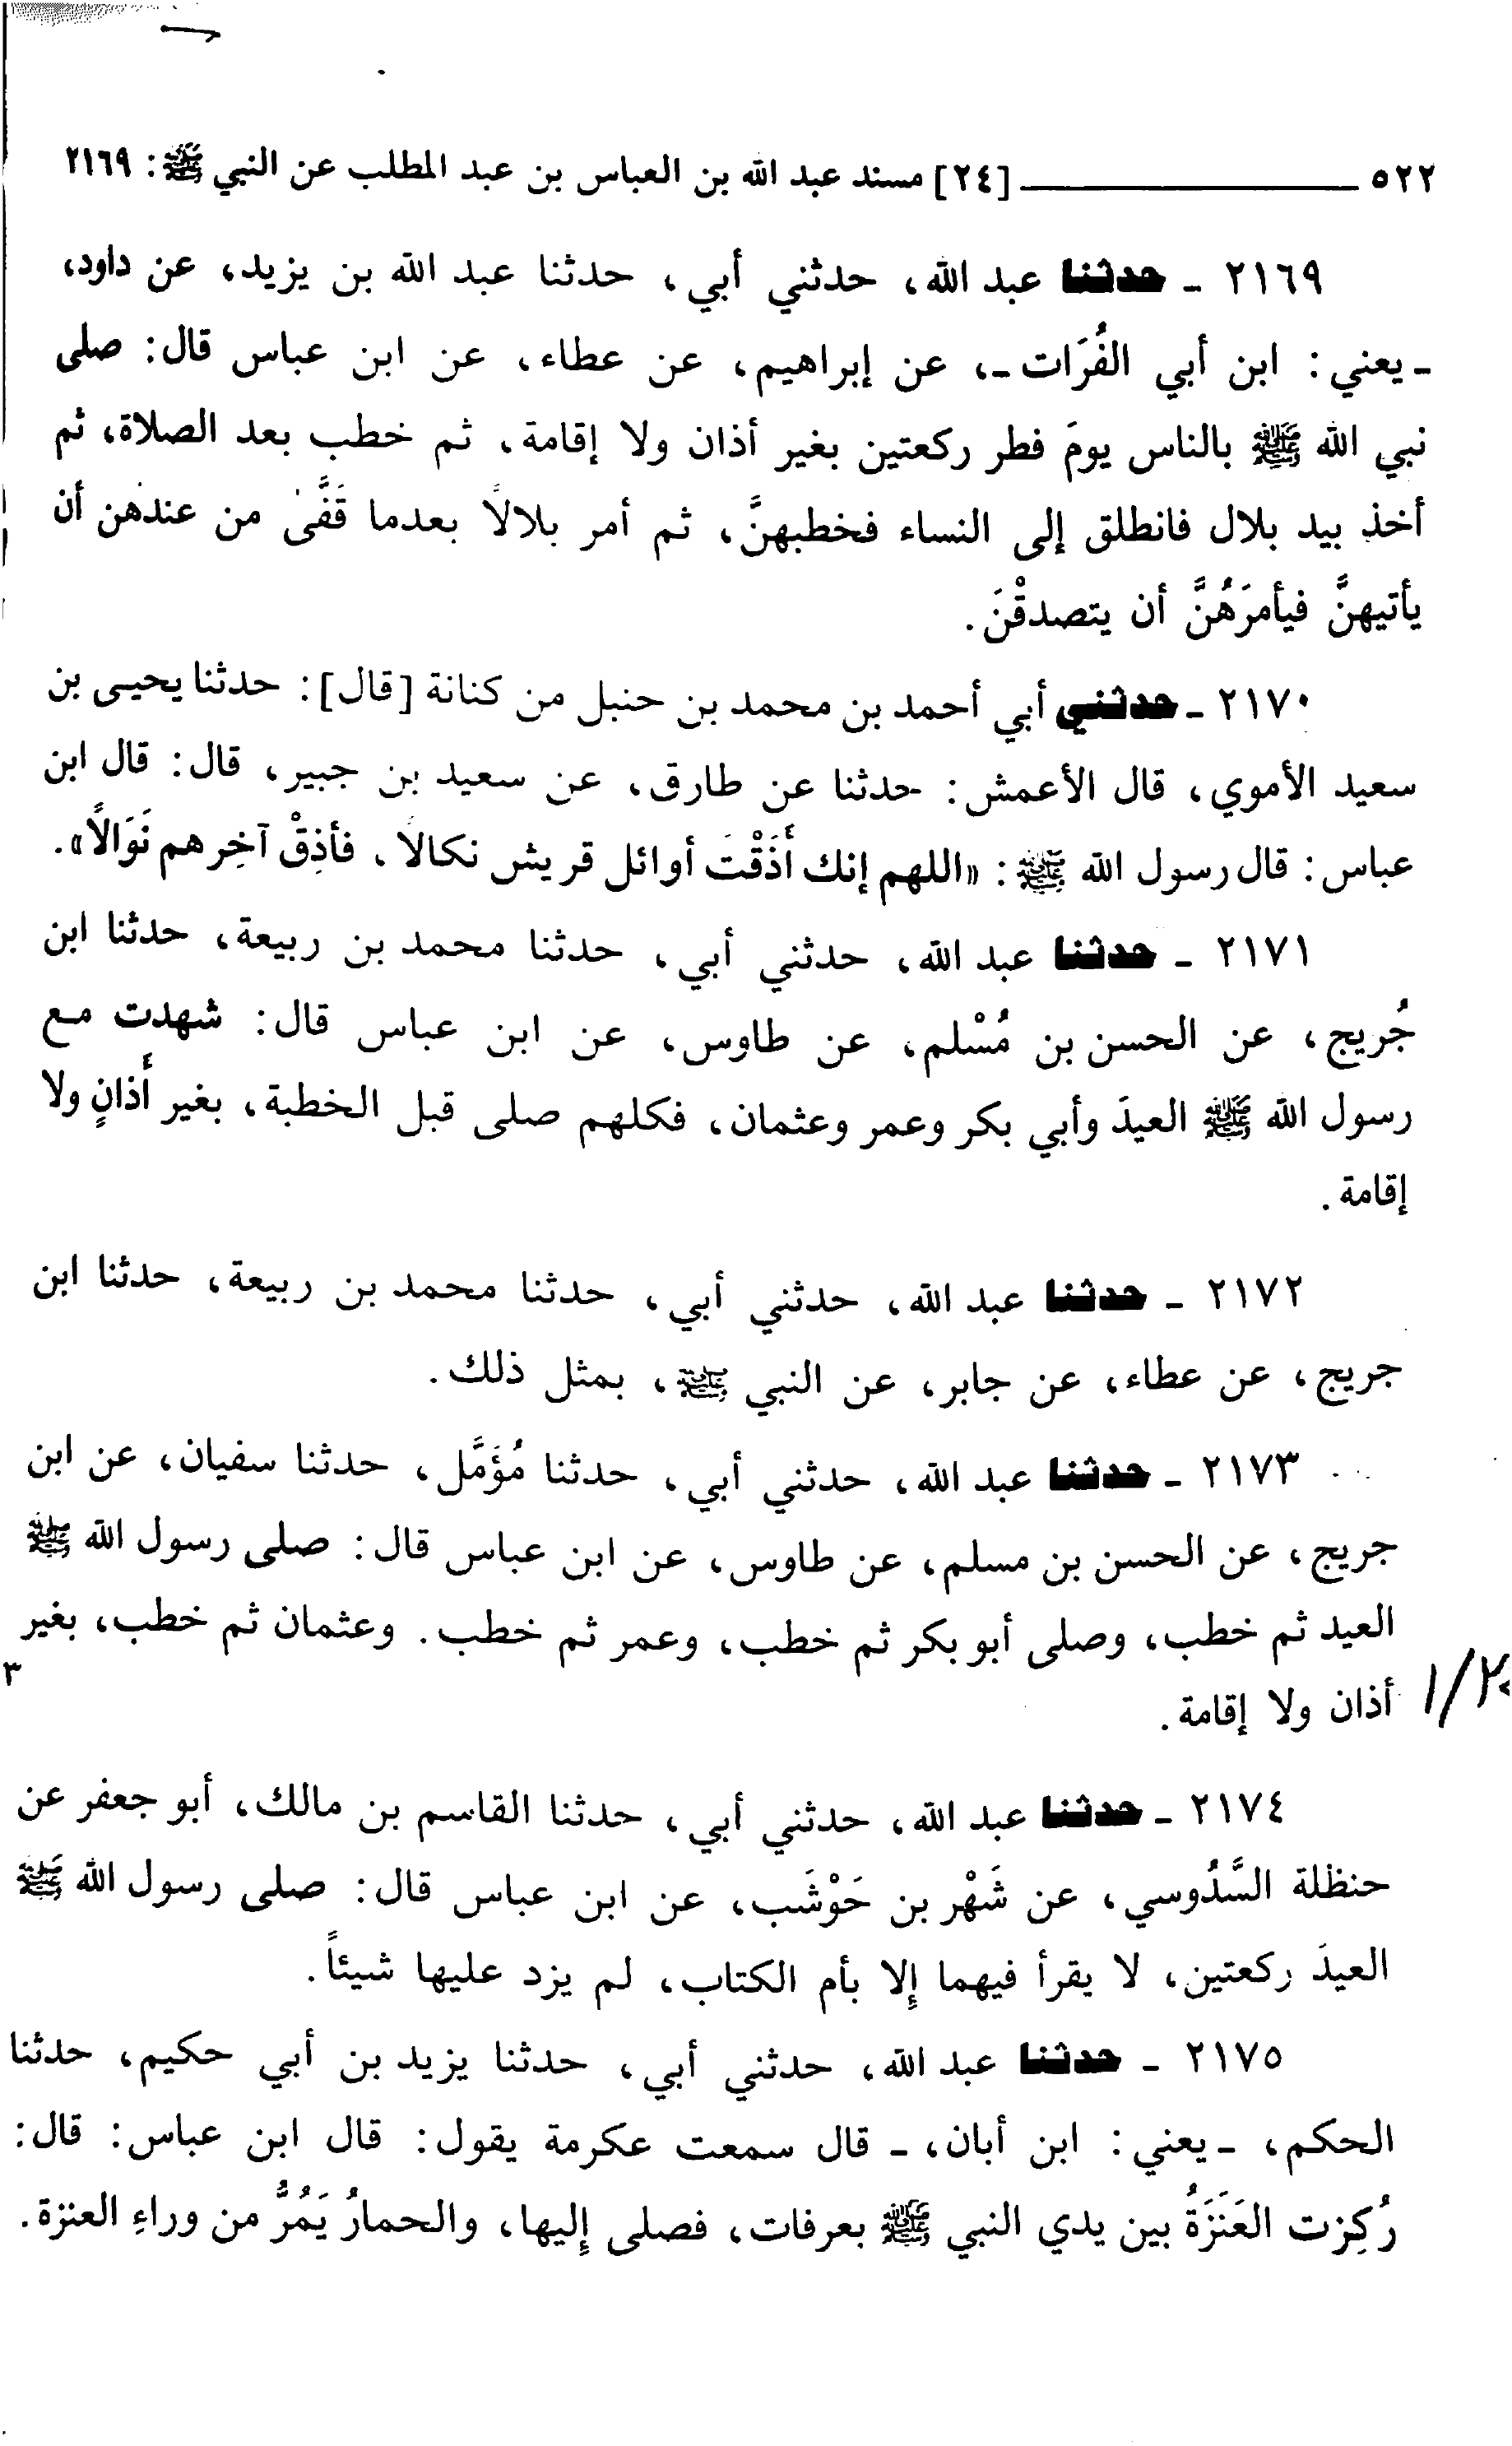 ٥٢٢ ــــــــــ [٢٤] مسند عبد الله بن العباس بن عبد المطلب عن النبي ﷺ: ٢١٦٩
٢١٦٩ ـ حدثنا عبد الله، حدثني أبي، حدثنا عبد الله بن يزيد، عن داود،
ـ يعني: ابن أبي الفُرَات ـ، عن إبراهيم، عن عطاء، عن ابن عباس قال: صلى
نبي الله ﷺ بالناس يومَ فطر ركعتين بغير أذان ولا إقامة، ثم خطب بعد الصلاة، ثم
أخذ بيد بلال فانطلق إلى النساء فخطبهنَّ، ثم أمر بلالاً بعدما قَفَّى من عندهن أن
يأتيهنَّ فيأمرَهُنَّ أن يتصدقْنَ.
٢١٧٠ ـ حدثني أبي أحمد بن محمد بن حنبل من كنانة [قال]: حدثنا يحيى بن
سعيد الأموي، قال الأعمش: حدثنا عن طارق، عن سعيد بن جبير، قال: قال ابن
عباس: قال رسول الله ﷺ: «اللهم إنك أَذَقْتَ أوائل قريش نكالاً، فأذِقْ آخِرهم نَوَالاً».
٢١٧١ ـ حدثنا عبد الله، حدثني أبي، حدثنا محمد بن ربيعة، حدثنا ابن
جُريج، عن الحسن بن مُسْلم، عن طاوس، عن ابن عباس قال: شهدت مع
رسول الله ﷺ العيدَ وأبي بكر وعمر وعثمان، فكلهم صلى قبل الخطبة، بغير أَذانٍ ولا
إقامة.
٢١٧٢ ـ حدثنا عبد الله، حدثني أبي، حدثنا محمد بن ربيعة، حدثنا ابن
جريج، عن عطاء، عن جابر، عن النبي ﷺ، بمثل ذلك.
٢١٧٣ ـ حدثنا عبد الله، حدثني أبي، حدثنا مُؤَمَّل، حدثنا سفيان، عن ابن
جريج، عن الحسن بن مسلم، عن طاوس، عن ابن عباس قال: صلى رسول الله ﷺ
العيد ثم خطب، وصلى أبو بكر ثم خطب، وعمر ثم خطب. وعثمان ثم خطب، بغير
أذان ولا إقامة.
٢١٧٤ ـ حدثنا عبد الله، حدثني أبي، حدثنا القاسم بن مالك، أبو جعفر عن
حنظلة السَّدُوسي، عن شَهْر بن حَوْشَب، عن ابن عباس قال: صلى رسول الله ﷺ
العيدَ ركعتين، لا يقرأ فيهما إلا بأم الكتاب، لم يزد عليها شيئاً.
٢١٧٥ ـ حدثنا عبد الله، حدثني أبي، حدثنا يزيد بن أبي حكيم، حدثنا
الحكم، ـ يعني: ابن أبان، ـ قال سمعت عكرمة يقول: قال ابن عباس: قال:
رُكِزت العَنَزَةُ بين يدي النبي ﷺ بعرفات، فصلى إليها، والحمارُ يَمُرُّ من وراءِ العنزة.